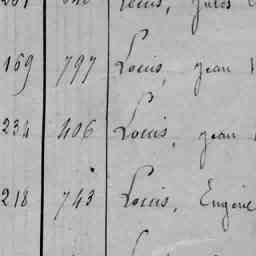 Louis, Jules
169 797 Louis, Jean
234 406 Louis, Jean
218 743 Louis, Eugène